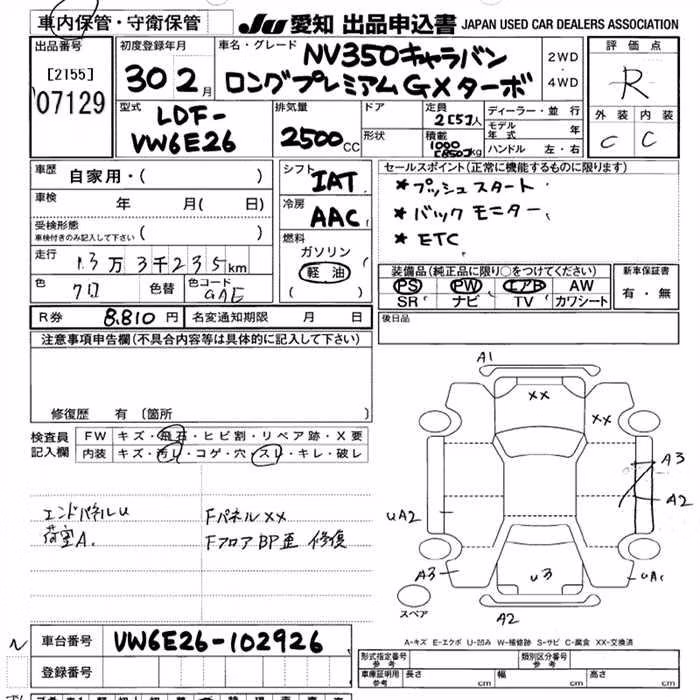 車内保管・守衛保管
JU 愛知 出品申込書 JAPAN USED CAR DEALERS ASSOCIATION
出品番号
[2155]
07129
初度登録年月
30 2月
車名・グレード
NV350キャラバン
ロングプレミアムGXターボ
2WD
・
4WD
評価点
R
外装 内装
C C
型式
LDF-
VW6E26
排気量
2500cc
ドア
形状
定員
2[5]人
積載
1000
[850]kg
ディーラー・並行
モデル年式 年
ハンドル 左・右
車歴
自家用・( )
車検
年 月( 日)
受検形態
車検付きのみ記入して下さい ( )
走行
13万3千235km
色
クロ
色替
色コード
GAE
シフト
IAT
冷房
AAC
燃料
ガソリン
軽油
( )
セールスポイント(正常に機能するものに限ります)
*プッシュスタート
*バックモニター
*ETC
装備品(純正品に限り○をつけてください)
PS PW エアB AW
SR ナビ TV カワシート
新車保証書
有・無
R券 8.810円 名変通知期限 月 日
後日品
注意事項申告欄(不具合内容等は具体的に記入して下さい)
修復歴 有 [箇所 ]
検査員
記入欄
FW キズ・飛石・ヒビ割・リペア跡・X要
内装 キズ・汚レ・コゲ・穴・スレ・キレ・破レ
エンドパネルU
荷室A.
FパネルXX
FフロアBP歪 修復
A1
XX
XX
A3
A2
UA2
A3
U3
UA1
A2
スペア
A-キズ E-エクボ U-凹み W-補修跡 S-サビ C-腐食 XX-交換済
車台番号 VW6E26-102926
登録番号
形式指定番号
参考
類別区分番号
参考
車庫証明用
参考
長さ cm 幅 cm 高さ cm